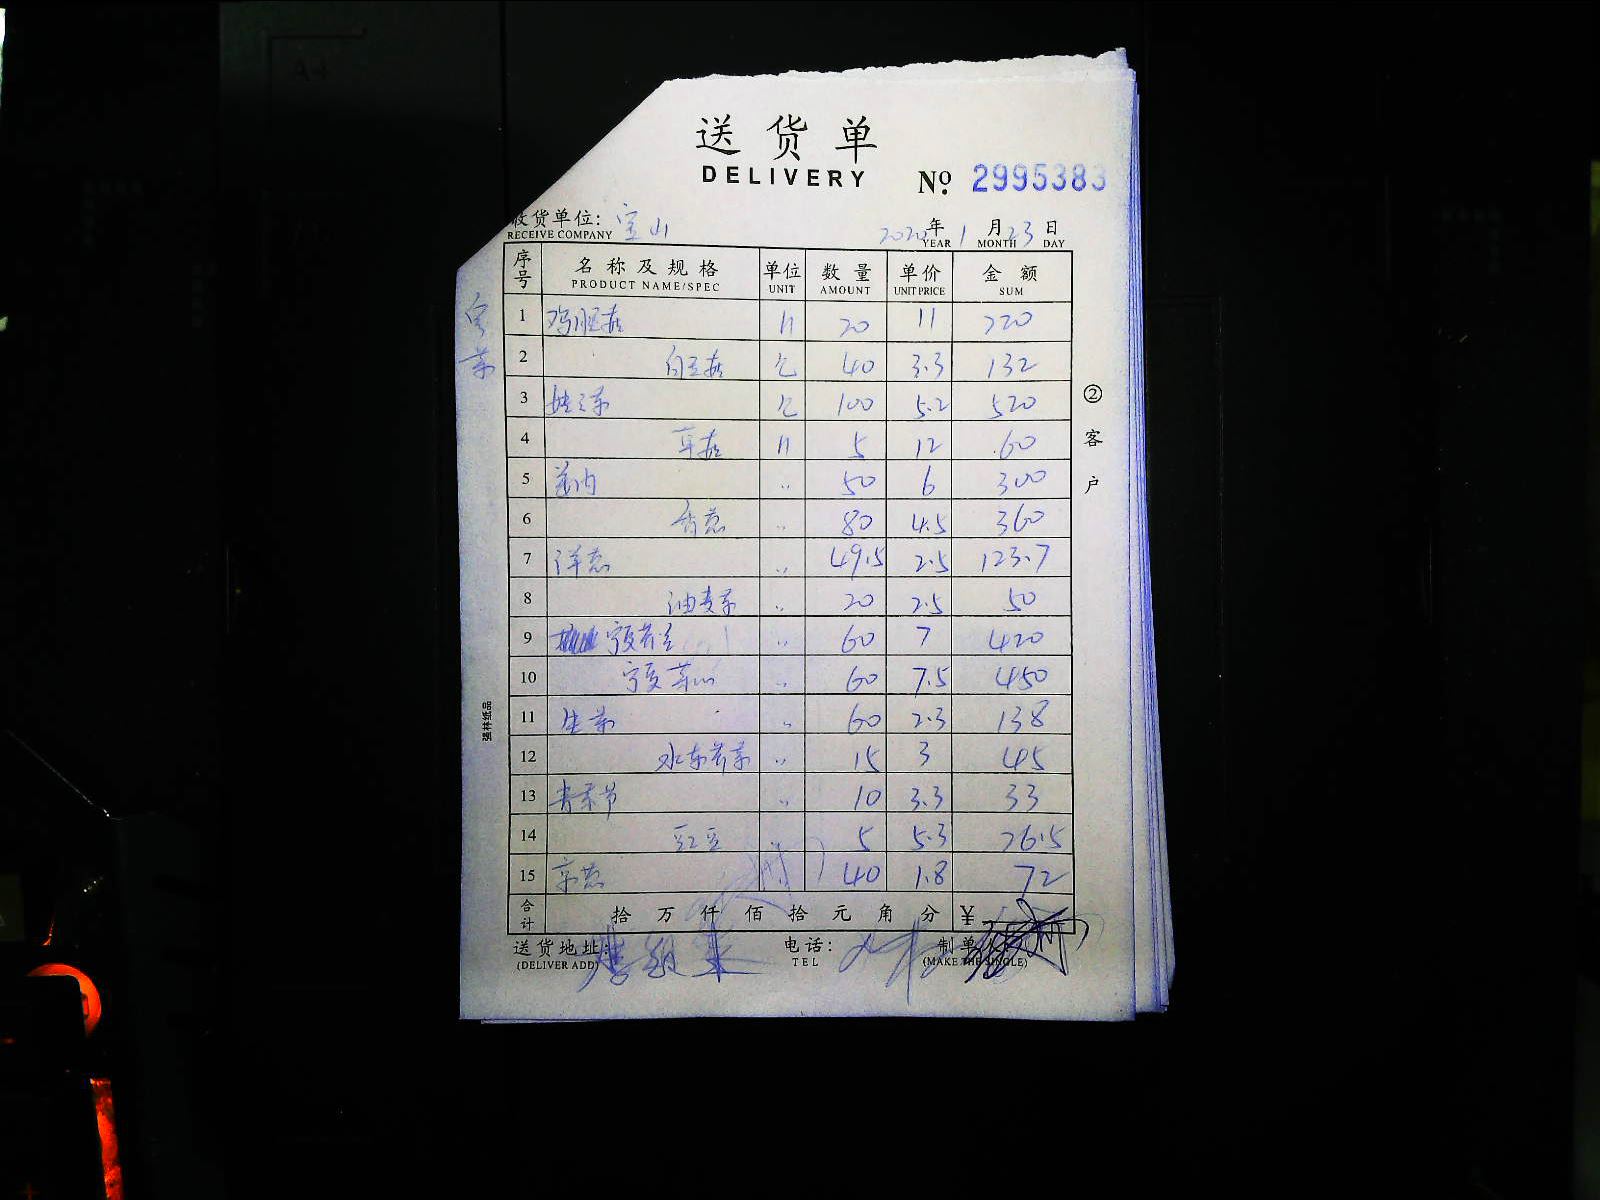 送货单
DELIVERY
No. 2995383
收货单位: 宝山 2020年1月23日
RECEIVE COMPANY YEAR MONTH DAY
序号 名称及规格 单位 数量 单价 金额
PRODUCT NAME/SPEC UNIT AMOUNT UNIT PRICE SUM
1 鸡腿菇 11 20 11 220
2 白玉菇 40 3.3 132
3 娃娃菜 100 5.2 520
4 草菇 11 5 12 60
5 姜肉 〃 50 6 300
6 香葱 〃 80 4.5 360
7 洋葱 〃 49.5 2.5 123.7
8 油麦菜 〃 20 2.5 50
9 宁夏芥兰 〃 60 7 420
10 宁夏菜心 〃 60 7.5 450
11 生菜 〃 60 2.3 138
12 水东芥菜 〃 15 3 45
13 〃 10 3.3 33
14 红豆 〃 5 5.3 26.5
15 京葱 40 1.8 72
合计 拾 万 仟 佰 拾 元 角 分 ¥
送货地址: 电话: 制单人
(DELIVER ADD) TEL (MAKE THE SINGLE)
②客户
强林纸品